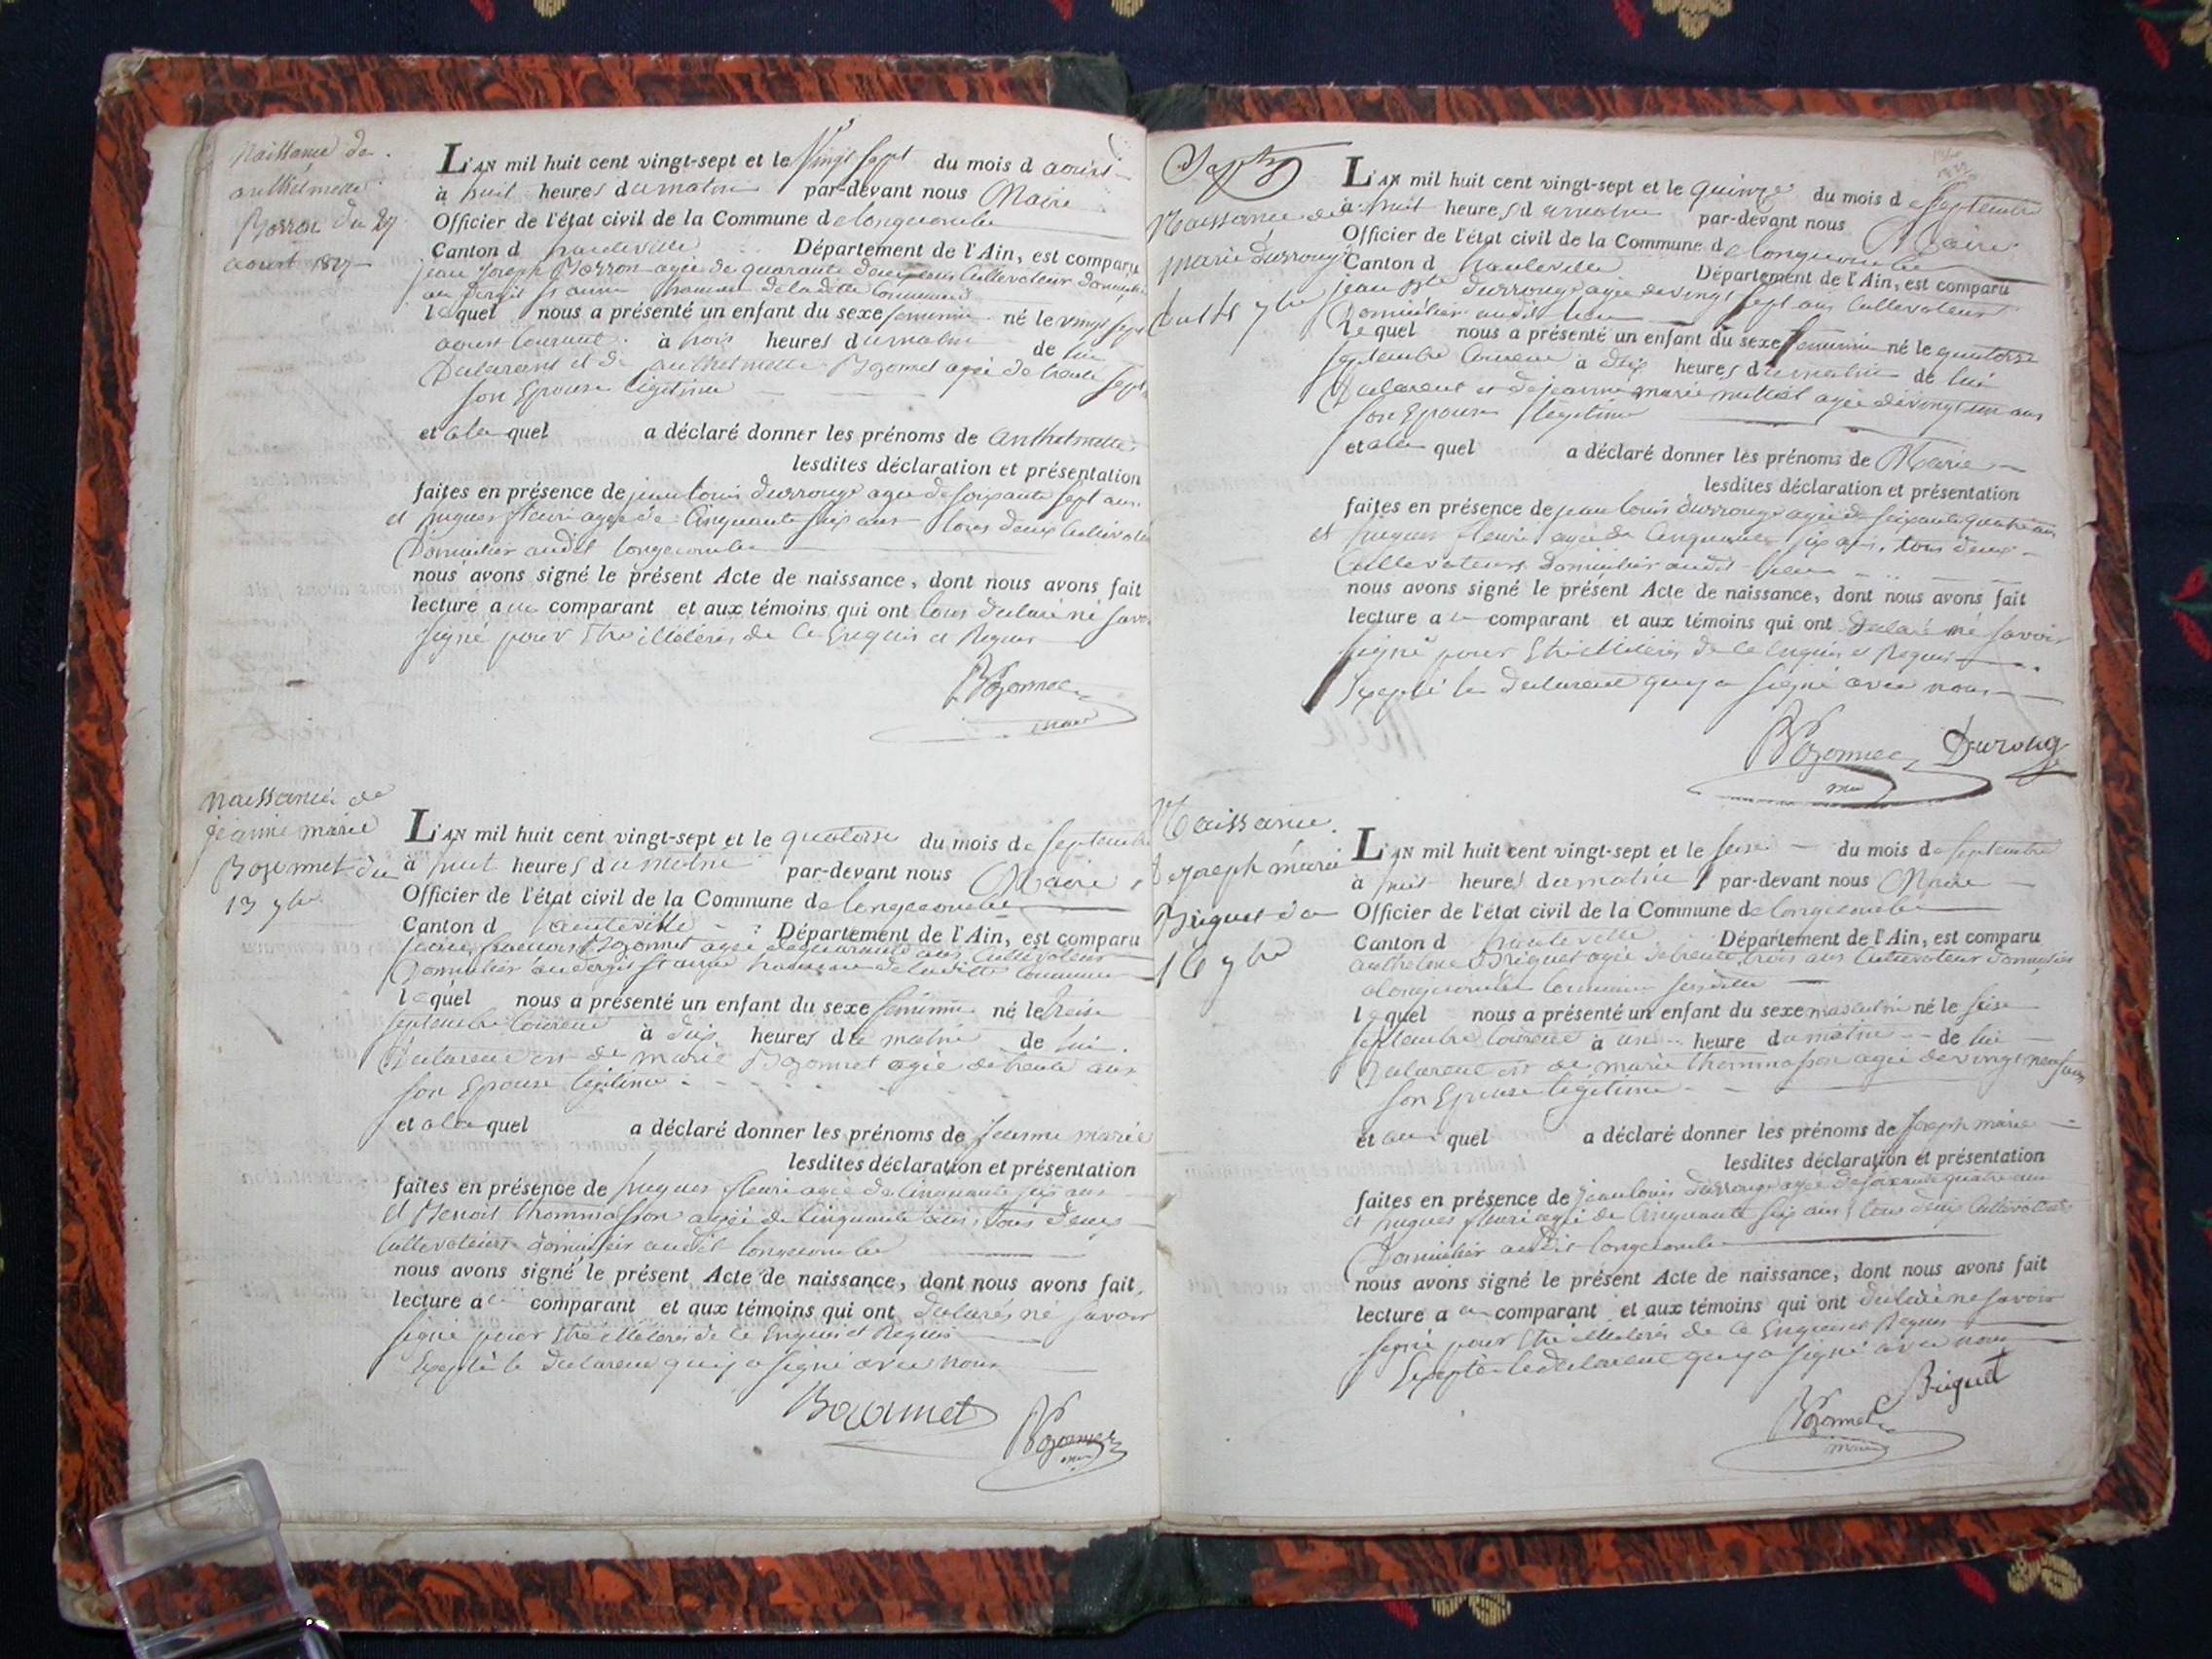 Naissance de
anthelmette
Borron du 27
aoust 1827
L'AN mil huit cent vingt-sept et le Vingt sept du mois d aoust
à huit heures du matin par-devant nous Maire
Officier de l'état civil de la Commune de longecombe
Canton d hauteville Département de l'Ain, est comparu
jean joseph Borron agé de quarante deux ans Cultivateur
hameau de ladite Commune
lequel nous a présenté un enfant du sexe feminin né le vingt sept
aoust Courant à trois heures du matin de lui
Declarant et de anthelmette Bozonnet agée de trente sept
son Epouse legitime
et a la quel a déclaré donner les prénoms de anthelmette
lesdites déclaration et présentation
faites en présence de jean louis durrouge agé de soixante sept ans
et hugues fleuri agé de Cinquante six ans tous deux Cultivate
Domicilier audit longecombe
nous avons signé le présent Acte de naissance, dont nous avons fait
lecture au comparant et aux témoins qui ont tous declaré ne savo
signé pour Etre illiteres de Ce Enquis et Requis
Bozonnet
maire
Naissance de
jeanne marie
Bozonnet du
13 7bre
L'AN mil huit cent vingt-sept et le quatorse du mois de septembre
à huit heures du matin par-devant nous Maire
Officier de l'état civil de la Commune de longecombe
Canton d hauteville Département de l'Ain, est comparu
jean francois Bozonnet agé de quarante ans Cultivateur
Domicilier hameau de ladite Commune
lequel nous a présenté un enfant du sexe feminin né le treise
septembre Courent à dix heures du matin de lui
Declarent et de marie Bozonnet agée de trente ans
son Epouse legitime
et a la quel a déclaré donner les prénoms de Jeanne marie
lesdites déclaration et présentation
faites en présence de hugues fleuri agé de Cinquante six ans
et Benoit thommasson agé de Cinquante ans, tous deux
Cultivateurs domicilier audit longecombe
nous avons signé le présent Acte de naissance, dont nous avons fait
lecture au comparant et aux témoins qui ont declarés ne savoir
signé pour Etre illiteres de Ce Enquis et Requis
Exepté le declarent quy a signé avec nous
Bozonnet
Bozonnet
maire
Septbre
Naissance de
marie durrouge
du 14 7bre
L'AN mil huit cent vingt-sept et le quinze du mois de septembre
à huit heures du matin par-devant nous Maire
Officier de l'état civil de la Commune de longecombe
Canton d hauteville Département de l'Ain, est comparu
jean Bte durrouge agé de vingt sept ans Cultivateur
Domicilier audit lieu
lequel nous a présenté un enfant du sexe feminin né le quatorse
septembre Courent à dix heures du matin de lui
Declarent et de jeanne marie agée de vingt un ans
son Epouse legitime
et a la quel a déclaré donner les prénoms de Marie
lesdites déclaration et présentation
faites en présence de jean louis durrouge agé de soixante quatre ans
et hugues fleuri agé de Cinquante six ans, tous deux
Cultivateurs domicilier audit lieu
nous avons signé le présent Acte de naissance, dont nous avons fait
lecture au comparant et aux témoins qui ont declaré ne savoir
signé pour Etre illiteres de Ce Enquis et Requis
Exepté le declarent quy a signé avec nous
Bozonnet Durouge
maire
Naissance
de joseph marie
Briguet du
16 7bre
L'AN mil huit cent vingt-sept et le seise du mois de septembre
à huit heures du matin par-devant nous Maire
Officier de l'état civil de la Commune de longecombe
Canton d hauteville Département de l'Ain, est comparu
anthelme Briguet agé de trente trois ans Cultivateur domicilier
a longecombe Commune susditte
lequel nous a présenté un enfant du sexe masculin né le seise
septembre Courent à une heure du matin de lui
Declarent et de marie thommasson agée de vingt neuf ans
son Epouse legitime
et au quel a déclaré donner les prénoms de Joseph marie
lesdites déclaration et présentation
faites en présence de jean louis durrouge agé de soixante quatre ans
et hugues fleuri agé de Cinquante six ans tous deux Cultivateurs
Domicilier audit longecombe
nous avons signé le présent Acte de naissance, dont nous avons fait
lecture au comparant et aux témoins qui ont declaré ne savoir
signé pour Etre illiteres de Ce Enquis et Requis
Exepté le declarent quy a signé avec nous
Briguet
Bozonnet
maire